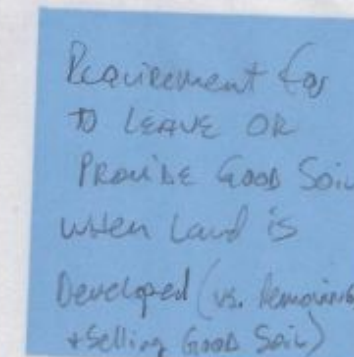 Requirement for
TO LEAVE OR
PROVIDE GOOD Soil
when Land is
Developed (vs. Removing
+ Selling Good Soil)